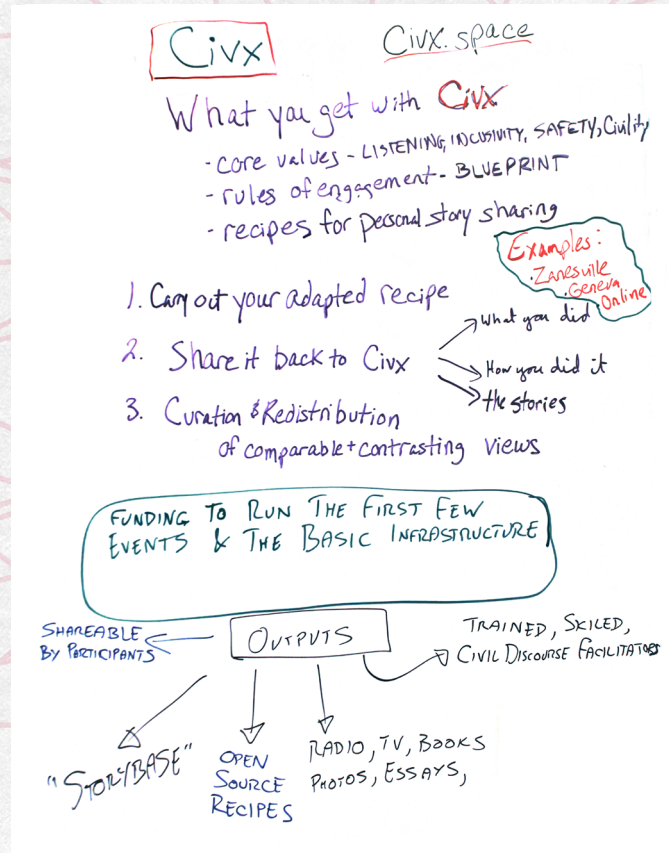 Civx
Civx.space
What you get with Civx
- core values - LISTENING, INCLUSIVITY, SAFETY, Civility
- rules of engagement - BLUEPRINT
- recipes for personal story sharing
Examples:
· Zanesville
· Geneva
Online
1. Carry out your adapted recipe
2. Share it back to Civx
What you did
How you did it
the stories
3. Curation & Redistribution
of comparable + contrasting views
FUNDING TO RUN THE FIRST FEW
EVENTS & THE BASIC INFRASTRUCTURE
SHAREABLE
BY PARTICIPANTS
OUTPUTS
TRAINED, SKILED,
CIVIL DISCOURSE FACILITATORS
"STORYBASE"
OPEN
SOURCE
RECIPES
RADIO, TV, BOOKS
PHOTOS, ESSAYS,